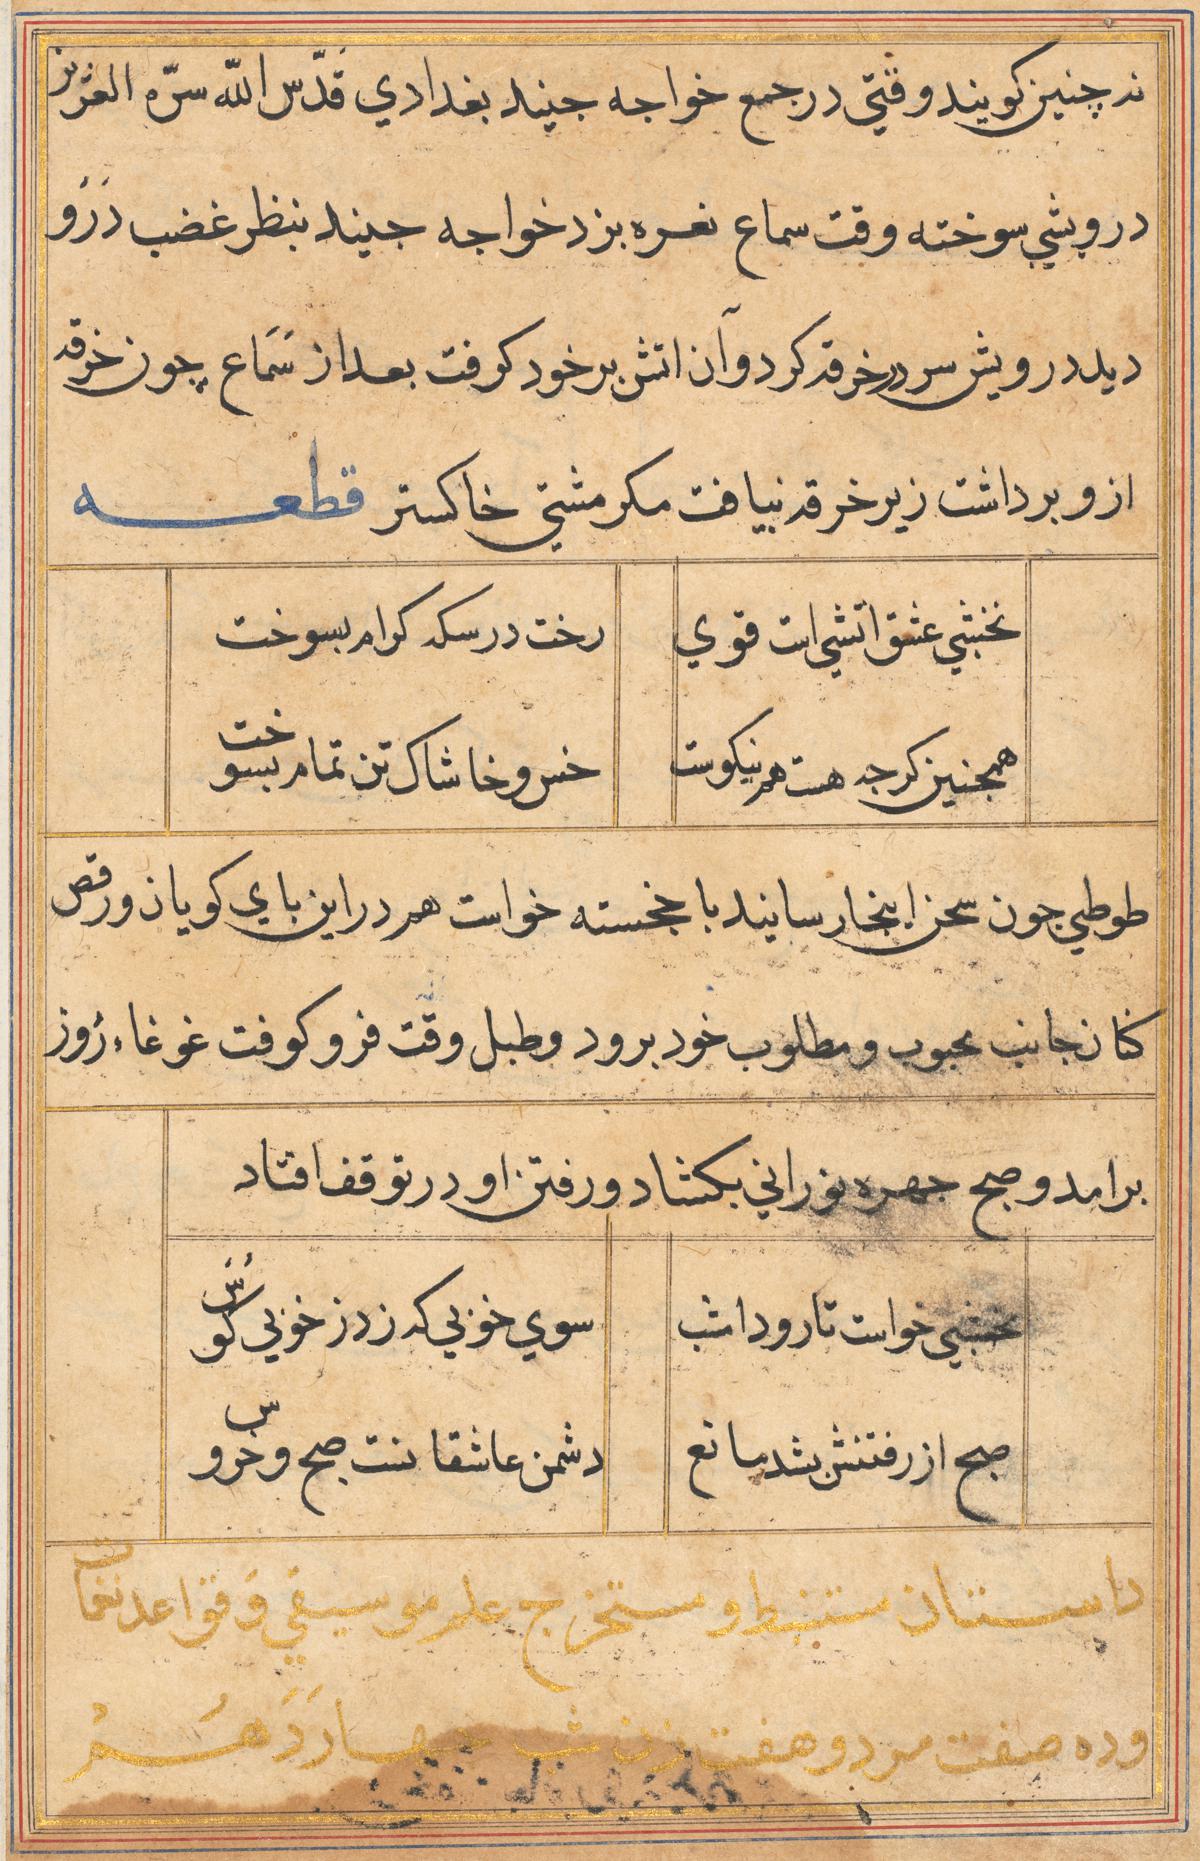 ند چنین کویند وقتی در جمع خواجه جنید بغدادی قدّس اللّه سرّه العزیز
درویشی سوخته وقت سماع نعره بزد خواجه جنید بنظر غضب دَرو
دید درویش سر در خرقه کرد وآن اتش بر خود کرفت بعد از سَمَاع چون خرقه
ازو برداشت زیر خرقه نیافت مکر مشتی خاکستر قطعه
نخشبی عشق اتشی است قوی رخت در سکه کرام بسوخت
همجنین کرجه هست هم نیکوست خس و خاشاک تن تمام بسوخت
طوطی جون سخن اینجا رسانید با خجسته خواست هم دراین بای کویان ورقص
کنان جانب محبوب و مطلوب خود برود وطبل وقت فرو کوفت غوغاء رُوز
برامد و صبح جهره نورانی بکشاد و رفتن او در توقف افتاد
نخشبی خواست تا رود امشب سوی خوبی که زد ز خوبی کوس
صبح از رفتنش بشد مانع دشمن عاشقانست صبح و خروس
داستان مستنبط و مستخرج علم موسیقی وَ قواعد نغمات
وده صفت مرد و هفت زن شب جهاردَهُم